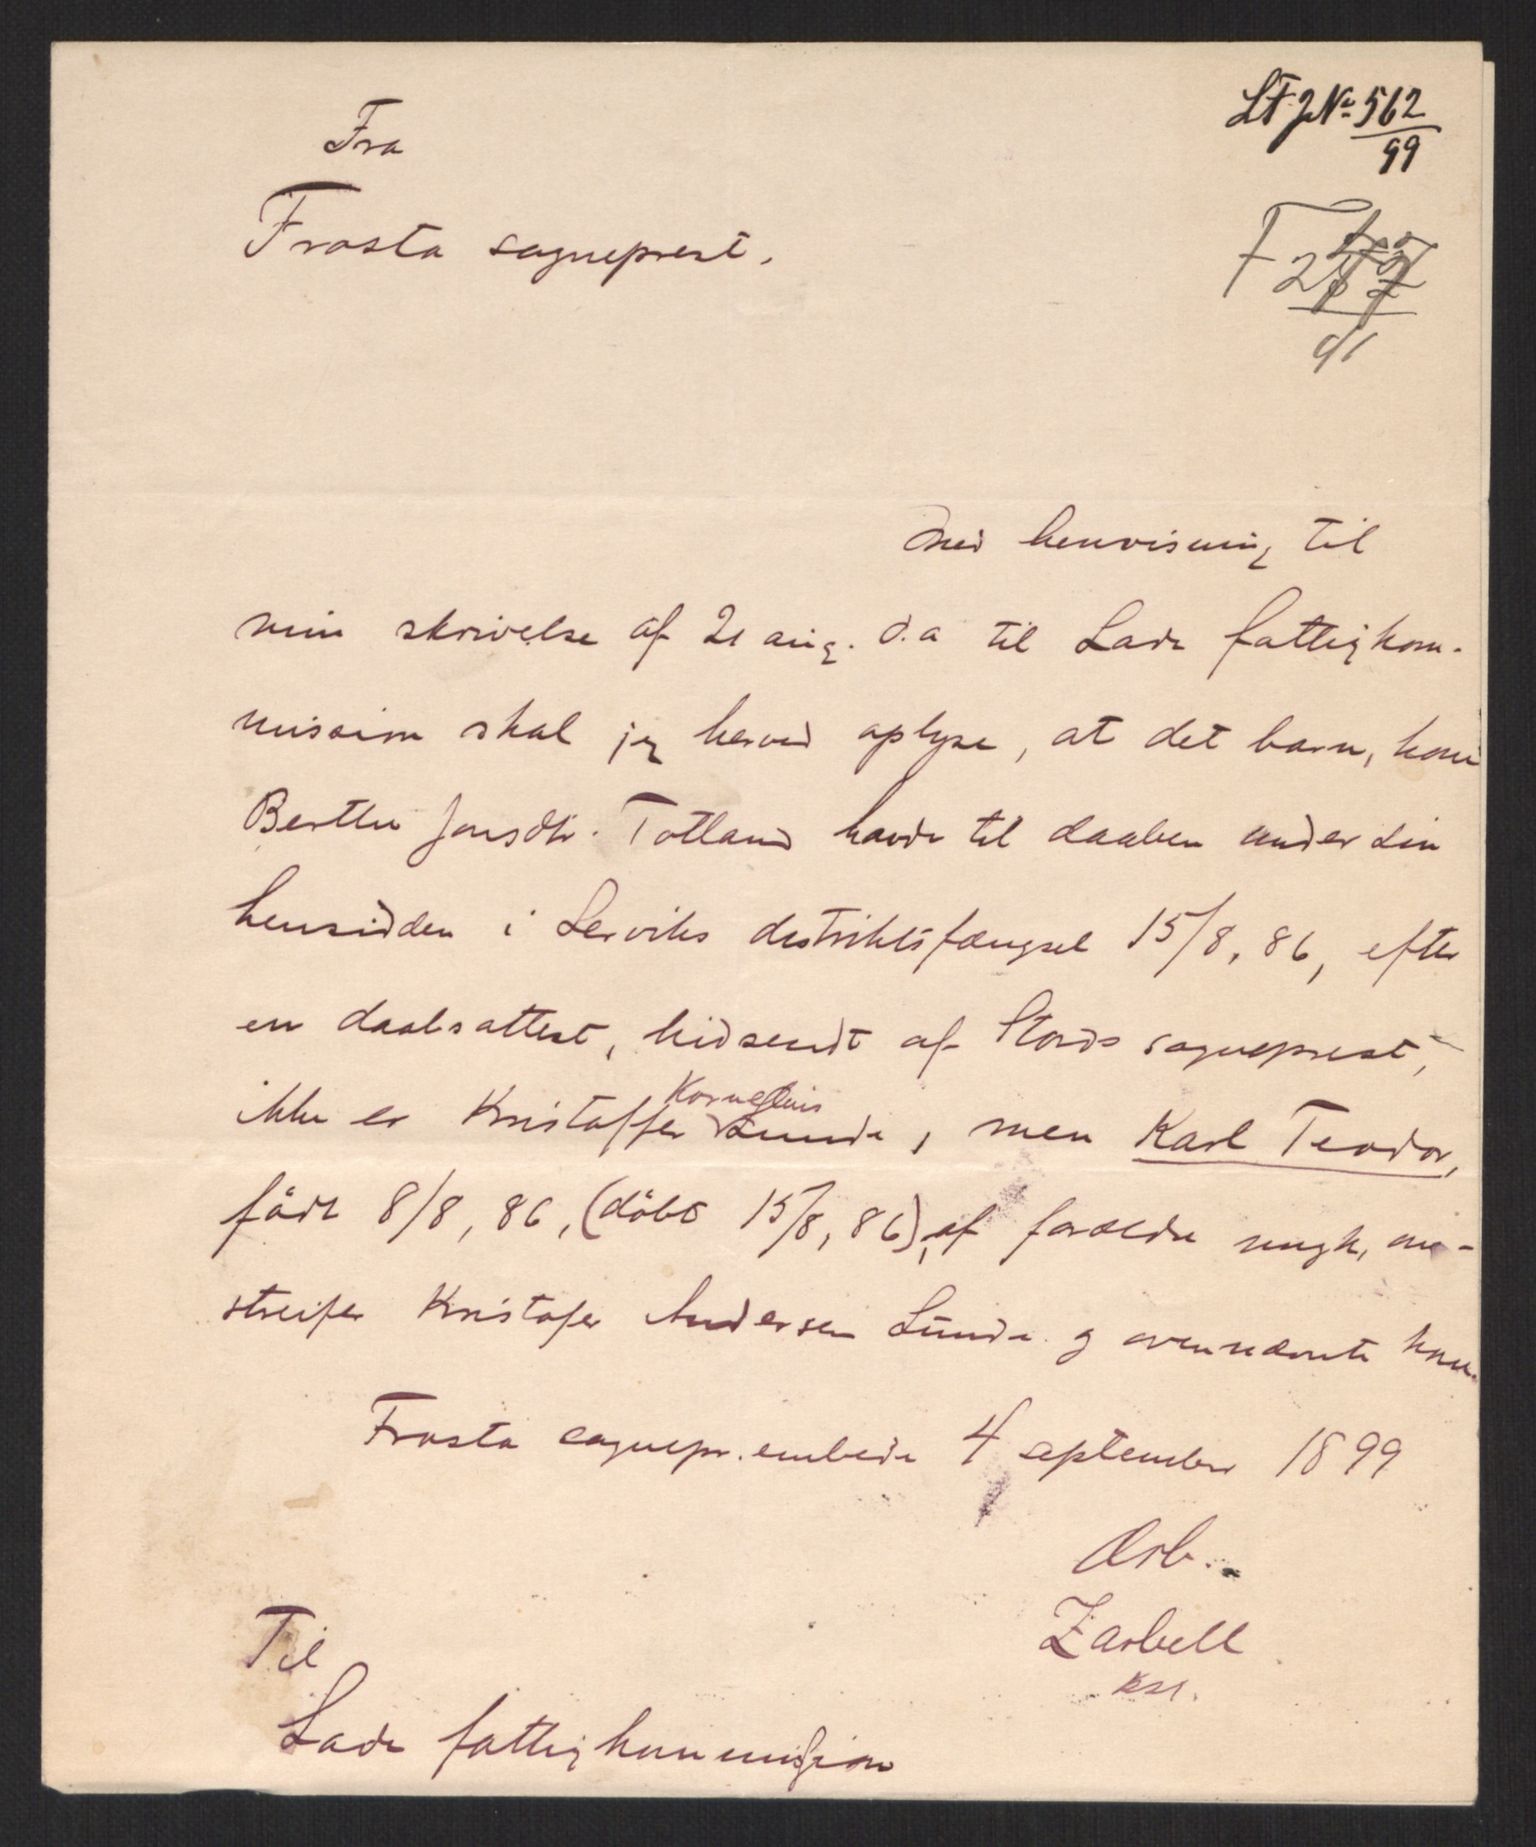 Fra
Frosta sogneprest.
LFJNo 562/99
F
91
Med henvisning til
min skrivelse af 21 aug. d.a til Lade fattigkom-
mission skal jeg herved oplyse, at det barn, som
Berthe Jonsdtr. Totland havde til daaben under sin
hensidden i Lerviks distriktsfængsel 15/8, 86, efter
en daabsattest, hidsendt af Stords sogneprest,
ikke er Kristoffer Kornelius Lunde, men Karl Teodor,
född 8/8, 86, (döbt 15/8, 86), af forældre ungk, om-
streifer Kristofer Andersen Lunde og ovennævnte kone.
Frosta sognepr.embede 4 september 1899
Ærb.
Zarbell
kst.
Til
Lade fattigkommission